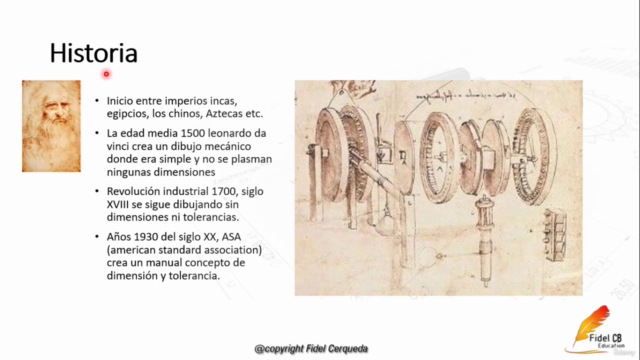 Historia
• Inicio entre imperios incas,
egipcios, los chinos, Aztecas etc.
• La edad media 1500 leonardo da
vinci crea un dibujo mecánico
donde era simple y no se plasman
ningunas dimensiones
• Revolución industrial 1700, siglo
XVIII se sigue dibujando sin
dimensiones ni tolerancias.
• Años 1930 del siglo XX, ASA
(american standard association)
crea un manual concepto de
dimensión y tolerancia.
Fidel CB
Education
@copyright Fidel Cerqueda